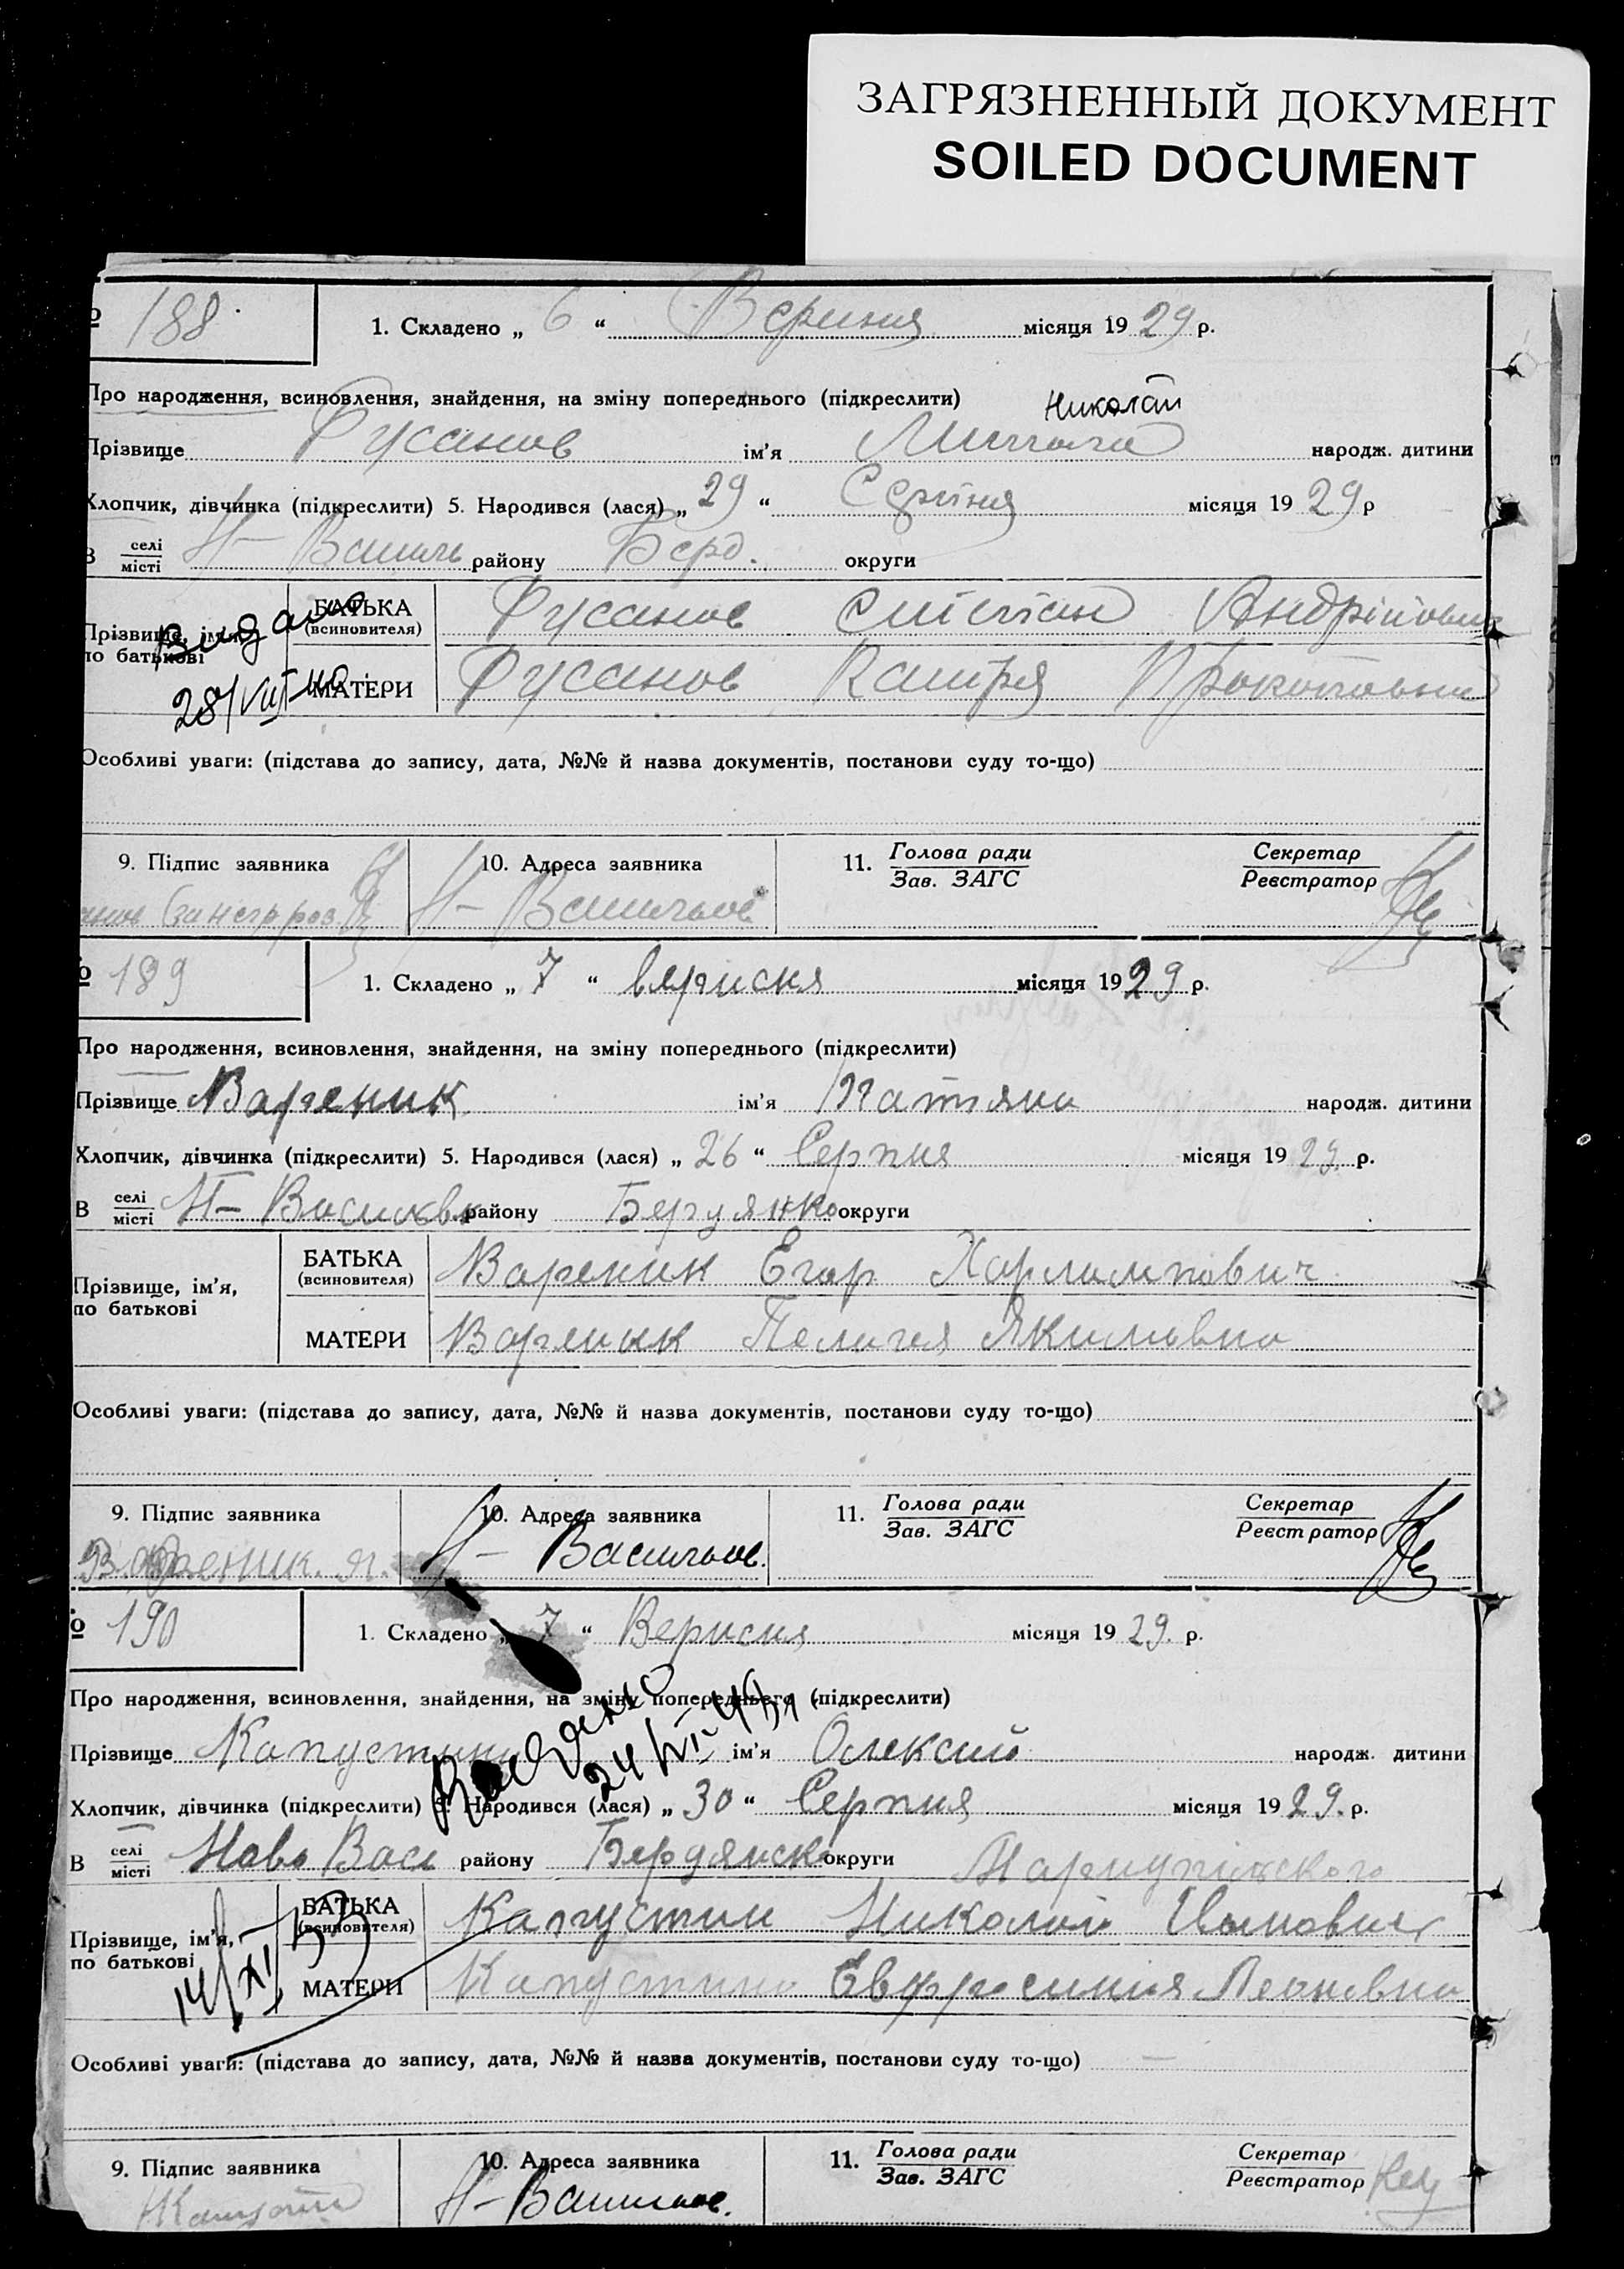 ЗАГРЯЗНЕННЫЙ ДОКУМЕНТ
SOILED DOCUMENT
188. 1. Складено „ 6 “ Верисня місяця 1929 р.
Про народження, всиновлення, знайдення, на зміну попереднього (підкреслити)
Николай
Прізвище Русанов ім'я народж. дитини
Хлопчик, дівчинка (підкреслити) 5. Народився (лася) „ 29 “ Серпня місяця 1929 р
В селі/місті Н- району Берд. округи
БАТЬКА (всиновителя) Русанов Степан Андрійович
Прізвище, ім'я, по батькові
Видано
28/VIII
МАТЕРИ Русанов Прокоповна
Особливі уваги: (підстава до запису, дата, №№ й назва документів, постанови суду то-що)
9. Підпис заявника 10. Адреса заявника 11. Голова ради Секретар
Зав. ЗАГС Реєстратор
Н- Васильов
189 1. Складено „ 7 “ верисня місяця 1929 р.
Про народження, всиновлення, знайдення, на зміну попереднього (підкреслити)
Прізвище Вареник ім'я Татяна народж. дитини
Хлопчик, дівчинка (підкреслити) 5. Народився (лася) „ 26 “ Серпня місяця 1929. р.
В селі/місті Н- Васильєвк району Бердянко округи
БАТЬКА (всиновителя) Вареник Егор Харлампович
Прізвище, ім'я, по батькові
МАТЕРИ Вареник Пелагея Якимовна
Особливі уваги: (підстава до запису, дата, №№ й назва документів, постанови суду то-що)
9. Підпис заявника 10. Адреса заявника 11. Голова ради Секретар
Зав. ЗАГС Реєстратор
Вареник. Н- Васильов.
190 1. Складено „ 7 “ Верисня місяця 1929. р.
Про народження, всиновлення, знайдення, на зміну попереднього (підкреслити)
Прізвище Капустин ім'я Олексий народж. дитини
Хлопчик, дівчинка (підкреслити) 5. Народився (лася) „ 30 “ Серпня місяця 1929. р.
В селі/місті Ново Вас району Бердянско округи Мариупільского
БАТЬКА (всиновителя) Капустин Николай Иванович
Прізвище, ім'я, по батькові
14/XI 53
МАТЕРИ Капустина Евфросиния Леоновна
Особливі уваги: (підстава до запису, дата, №№ й назва документів, постанови суду то-що)
9. Підпис заявника 10. Адреса заявника 11. Голова ради Секретар
Зав. ЗАГС Реєстратор
Н- Васильов.